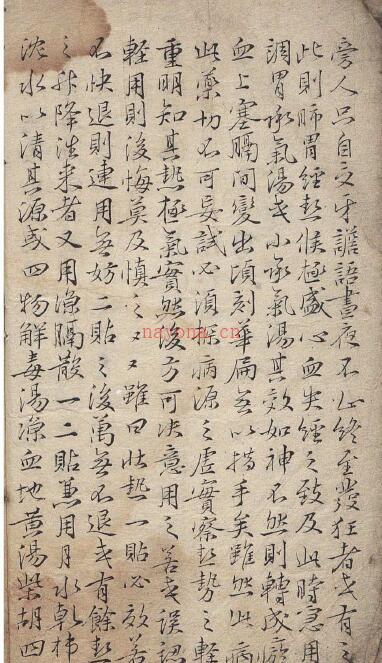 旁人只自交牙譫語晝夜不止終至發狂者或有之
此則肺胃經熱候極盛心血失經之致及此時急用
調胃承氣湯或小承氣湯其效如神不然則轉成瘀
血上塞膈間變出頃刻華扁無以措手矣雖然此病
此藥切不可妄試必須探病源之虛實察熱勢之輕
重明知其熱極氣實然後方可決意用之若或誤認
輕用則後悔莫及慎之〻〻雖曰壯熱一貼必效若
不快退則連用無妨二貼之後萬無不退或有餘熱
之升降往來者又用涼隔散一二貼兼用月水乾柿
沈水以清其源或四物解毒湯凉血地黃湯柴胡四
nayona.cn